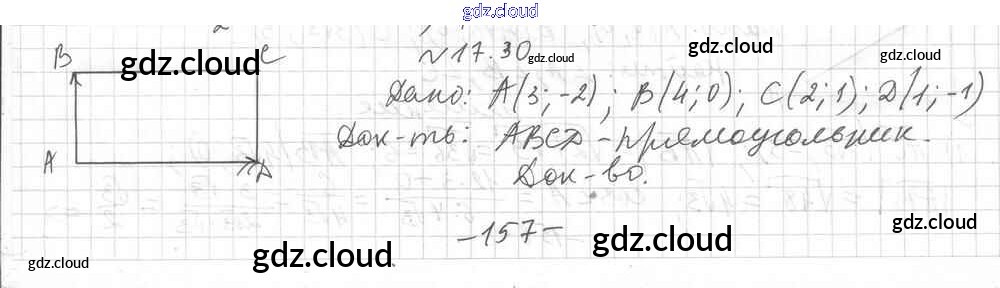 gdz.cloud
№17.30
gdz.cloud
B
C
gdz.cloud
gdz.cloud
Дано: A(3;-2); B(4;0); C(2;1); D(1;-1)
Док-ть: ABCD - прямоугольник.
A
D
Док-во.
-157-
gdz.cloud
gdz.cloud
gdz.cloud
gdz.cloud